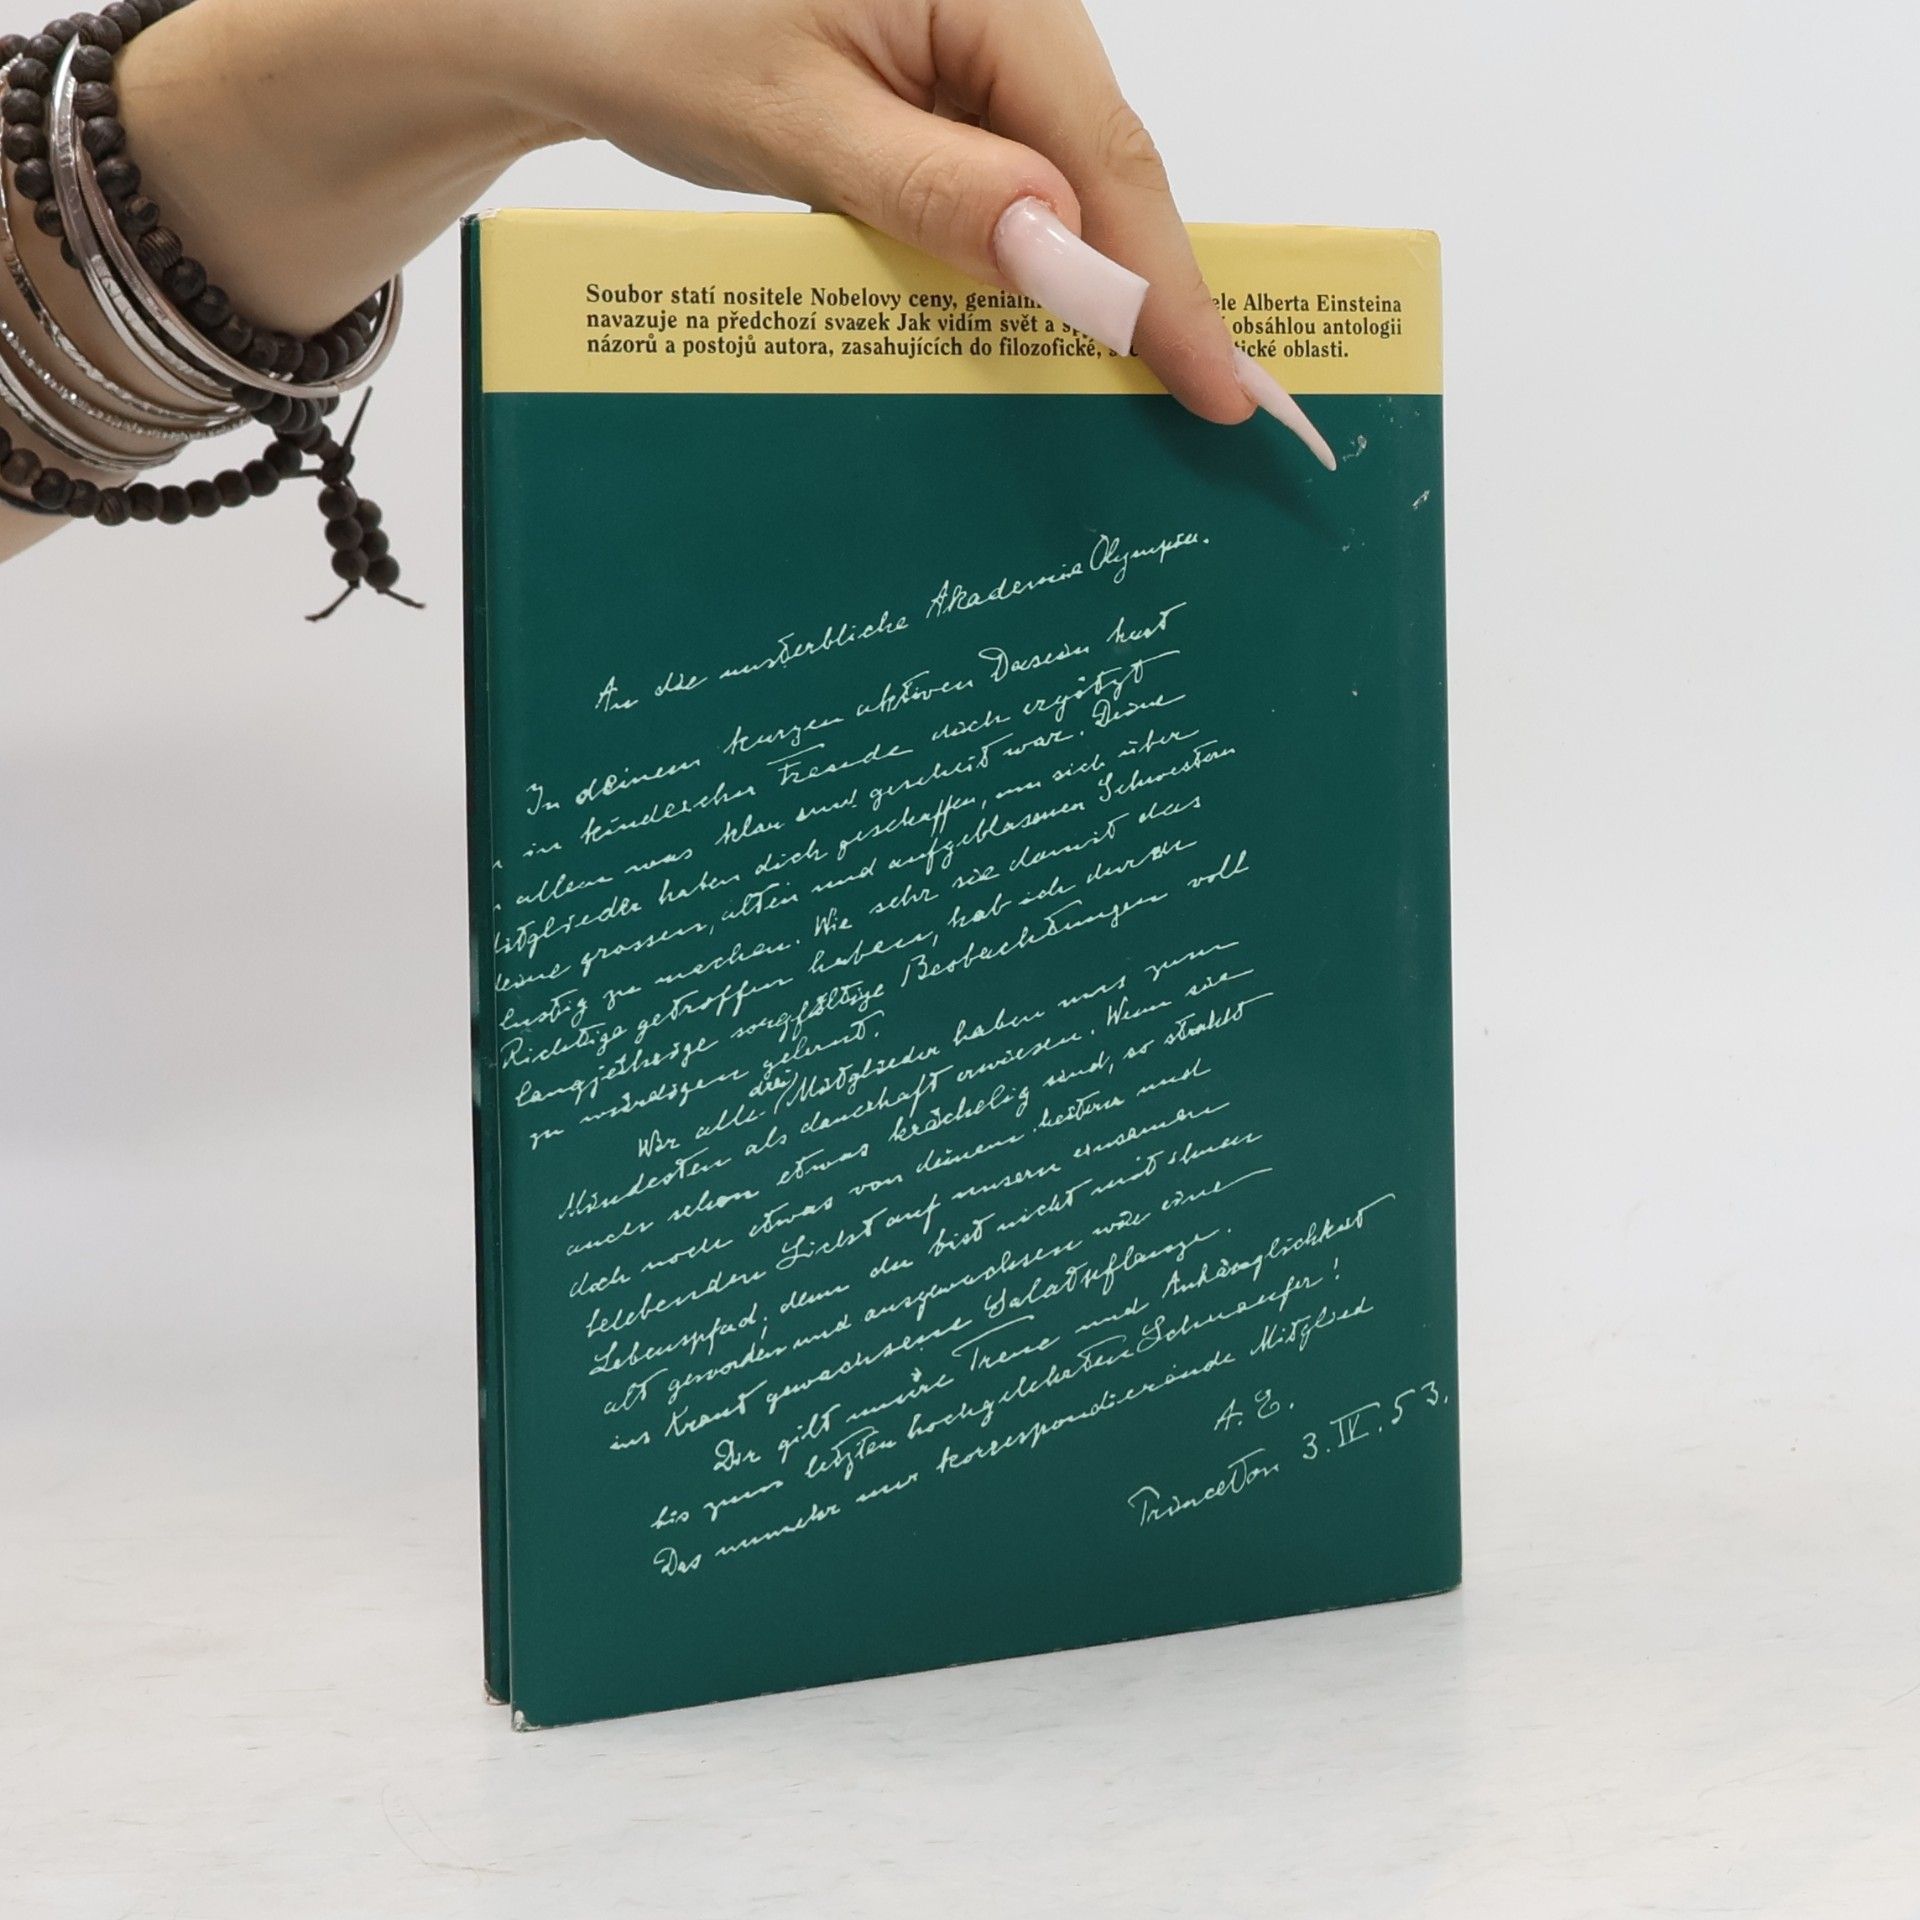 Soubor statí nositele Nobelovy ceny, ele Alberta Einsteina
navazuje na předchozí svazek Jak vidím svět a obsáhlou antologii
názorů a postojů autora, zasahujících do filozofické, tické oblasti.
An die unsterbliche Akademie Olympia.
In deinem kurzen aktiven Dasein hast
in kindescher Freude dich ergötzt
allem was klar und gescheit war. Deine
itglieder haben dich geschaffen, um sich über
eine grossen, alten und aufgeblasenen Schwestern
lustig zu machen. Wie sehr sie damit das
Richtige getroffen haben, hab ich durch
langjährige sorgfältige Beobachtungen voll
zu würdigen gelernt.
Wir alle drei Mitglieder haben uns zum
Mindesten als dauerhaft erwiesen. Wenn sie
auch schon etwas krächelig sind, so strahlt
doch noch etwas von deinem heitern und
belebenden Licht auf unsern einsamen
Lebenspfad; denn du bist nicht mit ihnen
alt geworden und ausgewachsen wie eine
ins Kraut gewachsene Salatpflanze.
Dir gilt unsre Treue und Anhänglichkeit
bis zum letzten hochgelehrten Schnaufer!
Das nunmehr nur korrespondierende Mitglied
A. E.
Princeton 3. IV. 53.